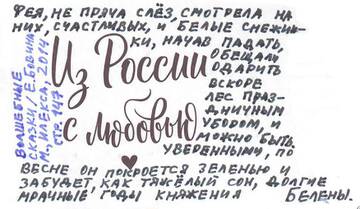 ФЕЯ, НЕ ПРЯЧА СЛЁЗ, СМОТРЕЛА НА
НИХ, СЧАСТЛИВЫХ, И БЕЛЫЕ СНЕЖИН-
КИ, НАЧАВ ПАДАТЬ,
ОБЕЩАЛИ
ОДАРИТЬ
ВСКОРЕ
ЛЕС ПРАЗ-
ДНИЧНЫМ
УБОРОМ, И
МОЖНО БЫТЬ
УВЕРЕННЫМИ, ПО
ВЕСНЕ ОН ПОКРОЕТСЯ ЗЕЛЕНЬЮ И
ЗАБУДЕТ, КАК ТЯЖЁЛЫЙ СОН, ДОЛГИЕ
МРАЧНЫЕ ГОДЫ КНЯЖЕНИЯ БЕЛЕНЫ.
Из России
с любовью
ВОЛШЕБНЫЕ
СКАЗКИ / Е. БОВИНА
М., ИЛЕКСА, 2014
стр 147